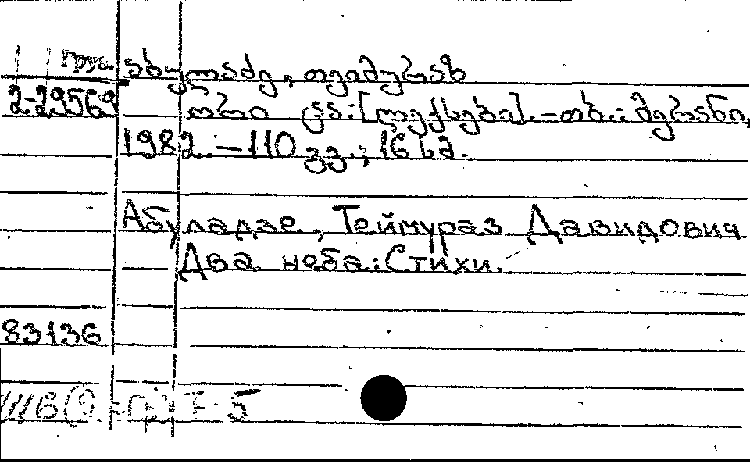 Груз.
აბულაძე, თეიმურაზ
2-29569 ორი ცა: [ლექსები].-თბ.: მერანი,
1982.-110 გვ.; 16 სმ.
Абуладзе, Теймураз Давидович
Два неба: Стихи.
83136
5